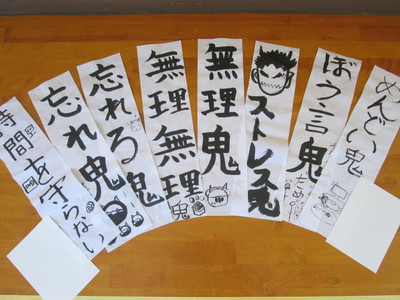 めんどい鬼
ぼう言鬼
ストレス鬼
無理鬼
無理無理
鬼
忘れる鬼
忘れ鬼
時間を守らない